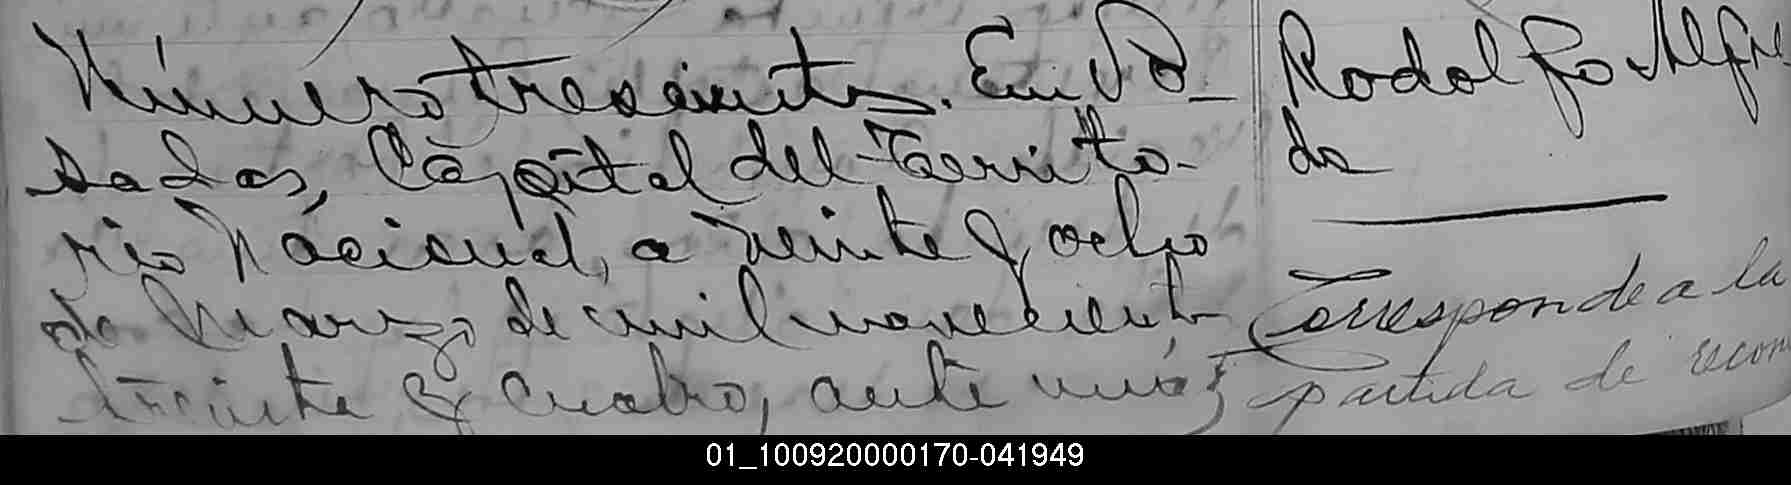 Número trescientos. En Po-
sadas, Capital del Territo-
rio Nacional, a veinte y ocho
de Marzo de mil novecientos
treinta y cuatro, ante mi
Rodolfo Alfre
do
Corresponde a la
partida de recon
01_100920000170-041949